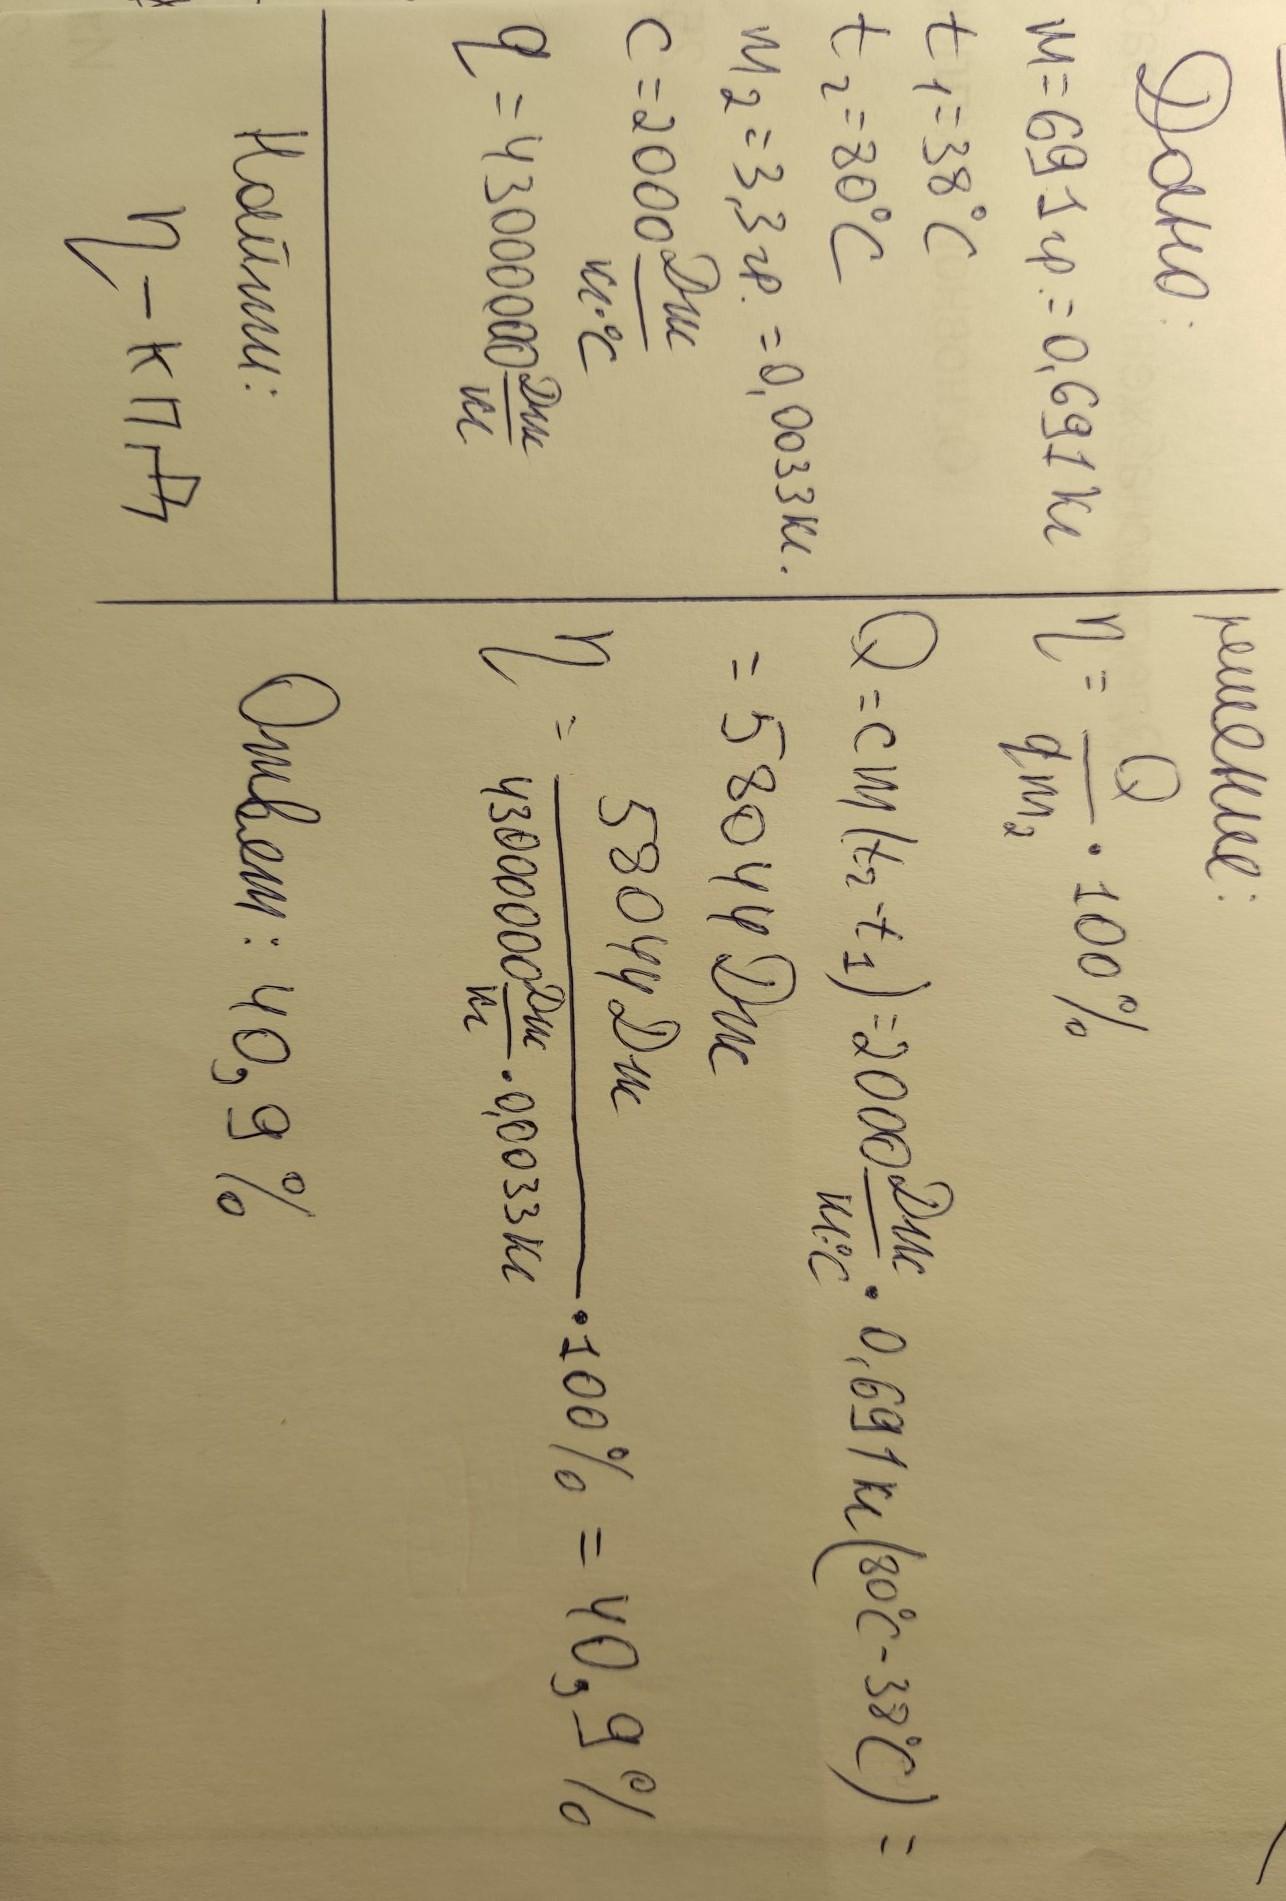 Дано:
m=691гр.=0,691кг
t1=38°C
t2=80°C
m2=3,3гр.=0,0033кг.
c=2000Дж
кг·°C
q=43000000Дж
кг
Найти:
η-КПД
решение:
η= Q/qm2 · 100%
Q=cm(t2-t1)=2000Дж/кг·°C · 0,691кг(80°C-38°C)=
= 58044Дж
η = 58044Дж/43000000Дж/кг · 0,0033кг · 100% = 40,9%
Ответ: 40,9%